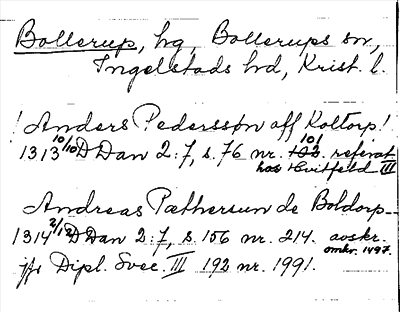 Bollerup, hg, Bollerups sn,
Ingelstads hd, Krist. l.
! Anders Pedersson aff Koltorp!
1313 10/10 D Dan 2:7, s. 76 nr. 101 referat
hos Hvitfeld III
Andreas Pæthersun de Boldorp
1314 2/12 D Dan 2:7, s. 156 nr. 214. avskr.
omkr. 1497.
jfr Dipl. Svec. III 192 nr. 1991.